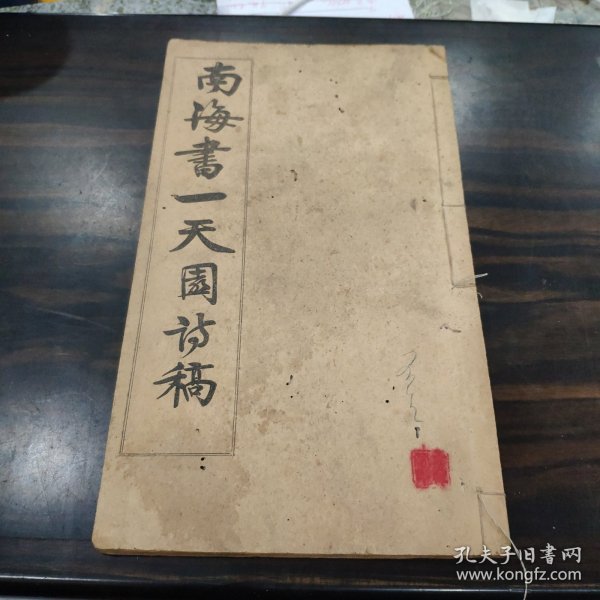 南海書一天園诗稿
孔夫子旧書网
www.kongfz.com